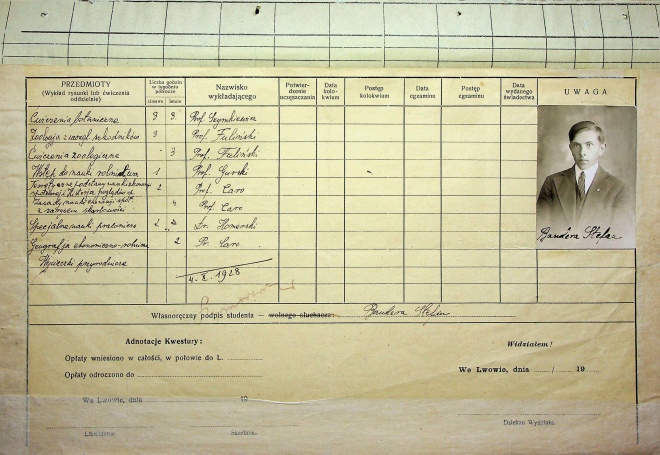 PRZEDMIOTY
(Wykład rysunki lub ćwiczenia oddzielnie)
Liczba godzin w tygodniu półrocze
zimowe letnie
Nazwisko wykładającego
Potwierdzenie uczęszczania
Data kolokwium
Postęp kolokwium
Data egzaminu
Postęp egzaminu
Data wydanego świadectwa
UWAGA
Ćwiczenia botaniczne 3 2 Prof. Szymkiewicz
Zoologja z uwzgl. szkodników 3 Prof. Fuliński
Ćwiczenia zoologiczne - 3 Prof. Fuliński
Wstęp do nauki rolnictwa 1 Prof. Gurski
2 Prof. Caro
Zasady nauki
z zarysem skarbowości 4 Prof. Caro
Specjalne nauki 2 2 Dr.
Geografja ekonomiczno-rolnicza 2 Pr. Caro
Wycieczki przyrodnicze
4. X. 1928
Bandera Stefan
Własnoręczny podpis studenta — wolnego słuchacza: Bandera Stefan
Adnotacje Kwestury:
Opłaty wniesiono w całości, w połowie do L.
Opłaty odroczono do
We Lwowie, dnia 19
Likwidator. Skarbnik.
Widziałem!
We Lwowie, dnia / 19
Dziekan Wydziału.